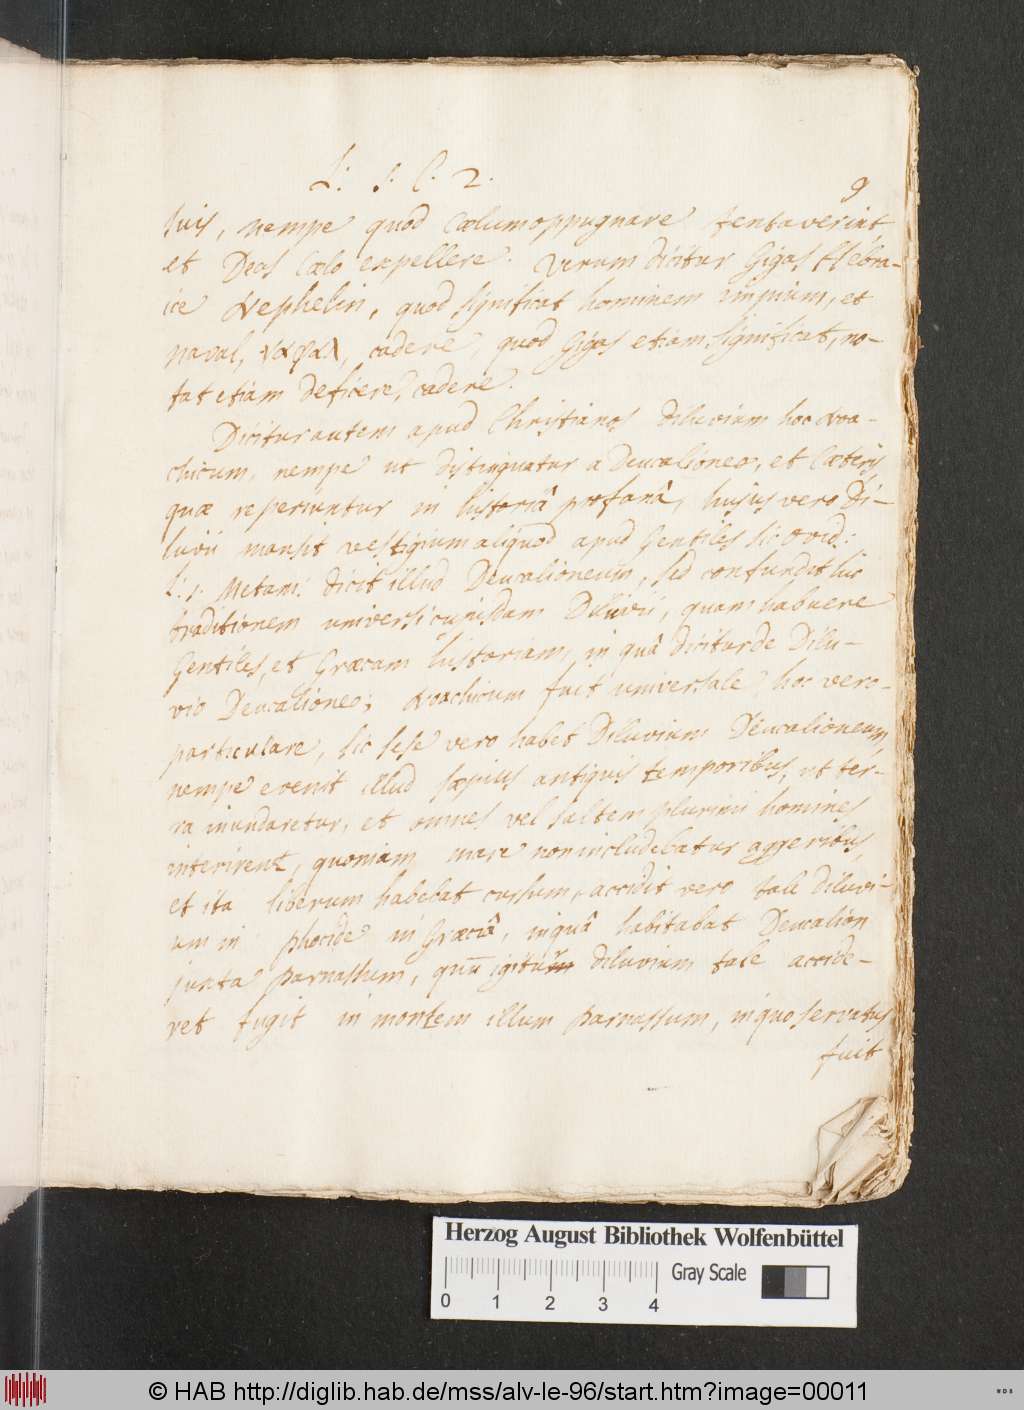 L: 1: C: 2.
9
suis, nempe quod Cœlum oppugnare tentaverint
et Deos Cœlo expellere. Verum dicitur Gigas Hebra-
ice Nephelin, quod significat hominem impium, et
naval, cadere, quod Gigas etiam significat, no-
tat etiam deficere, cadere.
Dicitur autem apud Christianos diluvium hoc Noa-
chicum, nempe ut distinguatur a Deucalioneo, et Cæteris
quæ reperiuntur in historiâ profanâ, hujus vero Di-
luvii mansit vestigium aliquod apud Gentiles sic Ovid:
L: 1. Metam: dicit illud Deucalioneum, sed confundit hic
traditionem universi cujusdam Diluvii, quam habuere
Gentiles, et Græcam historiam, in quâ dicitur de Dilu-
vio Deucalioneo; Noachicum fuit universale, hoc vero
particulare, sic sese vero habet Diluvium Deucalioneum,
nempe evenit illud sæpius antiquis temporibus, ut ter-
ra inundaretur, et omnes vel saltem plurimi homines
interirent, quoniam mare non includebatur aggeribus,
et ita liberum habebat cursum, accidit vero tale diluvi-
um in phocide in Græciâ, in quâ habitabat Deucalion
juxta parnassum, quū igitur diluvium tale accide-
ret fugit in montem illum parnassum, in quo servatus
fuit
Herzog August Bibliothek Wolfenbüttel
Gray Scale
0 1 2 3 4
© HAB http://diglib.hab.de/mss/alv-le-96/start.htm?image=00011